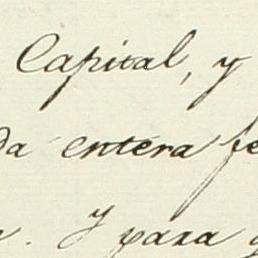 Capital, y
da entera fe
. Y para q